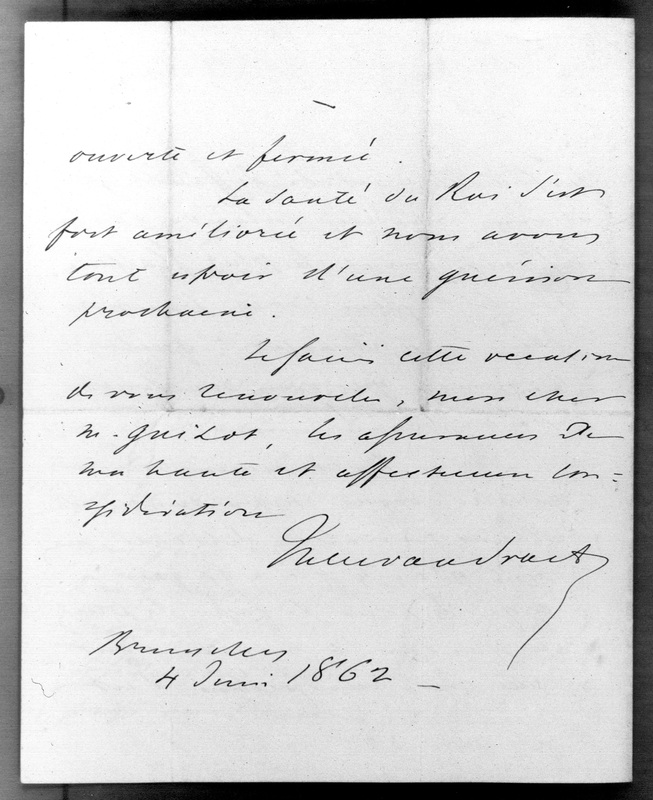 ouverte et fermée.
La Santé du Roi s'est
fort améliorée et nous avons
tout espoir d'une guérison
prochaine.
Je saisis cette occasion
de vous renouveler, mon cher
M. Guizot, les assurances de
ma haute et affectueuse con=
sidération
Bruxelles
4 Juin 1862 –